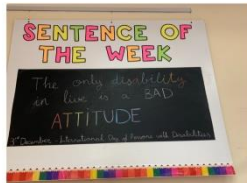 SENTENCE OF
THE WEEK
The only disability
in live is a BAD
ATTITUDE
3rd December - International Day of Persons with Disabilities